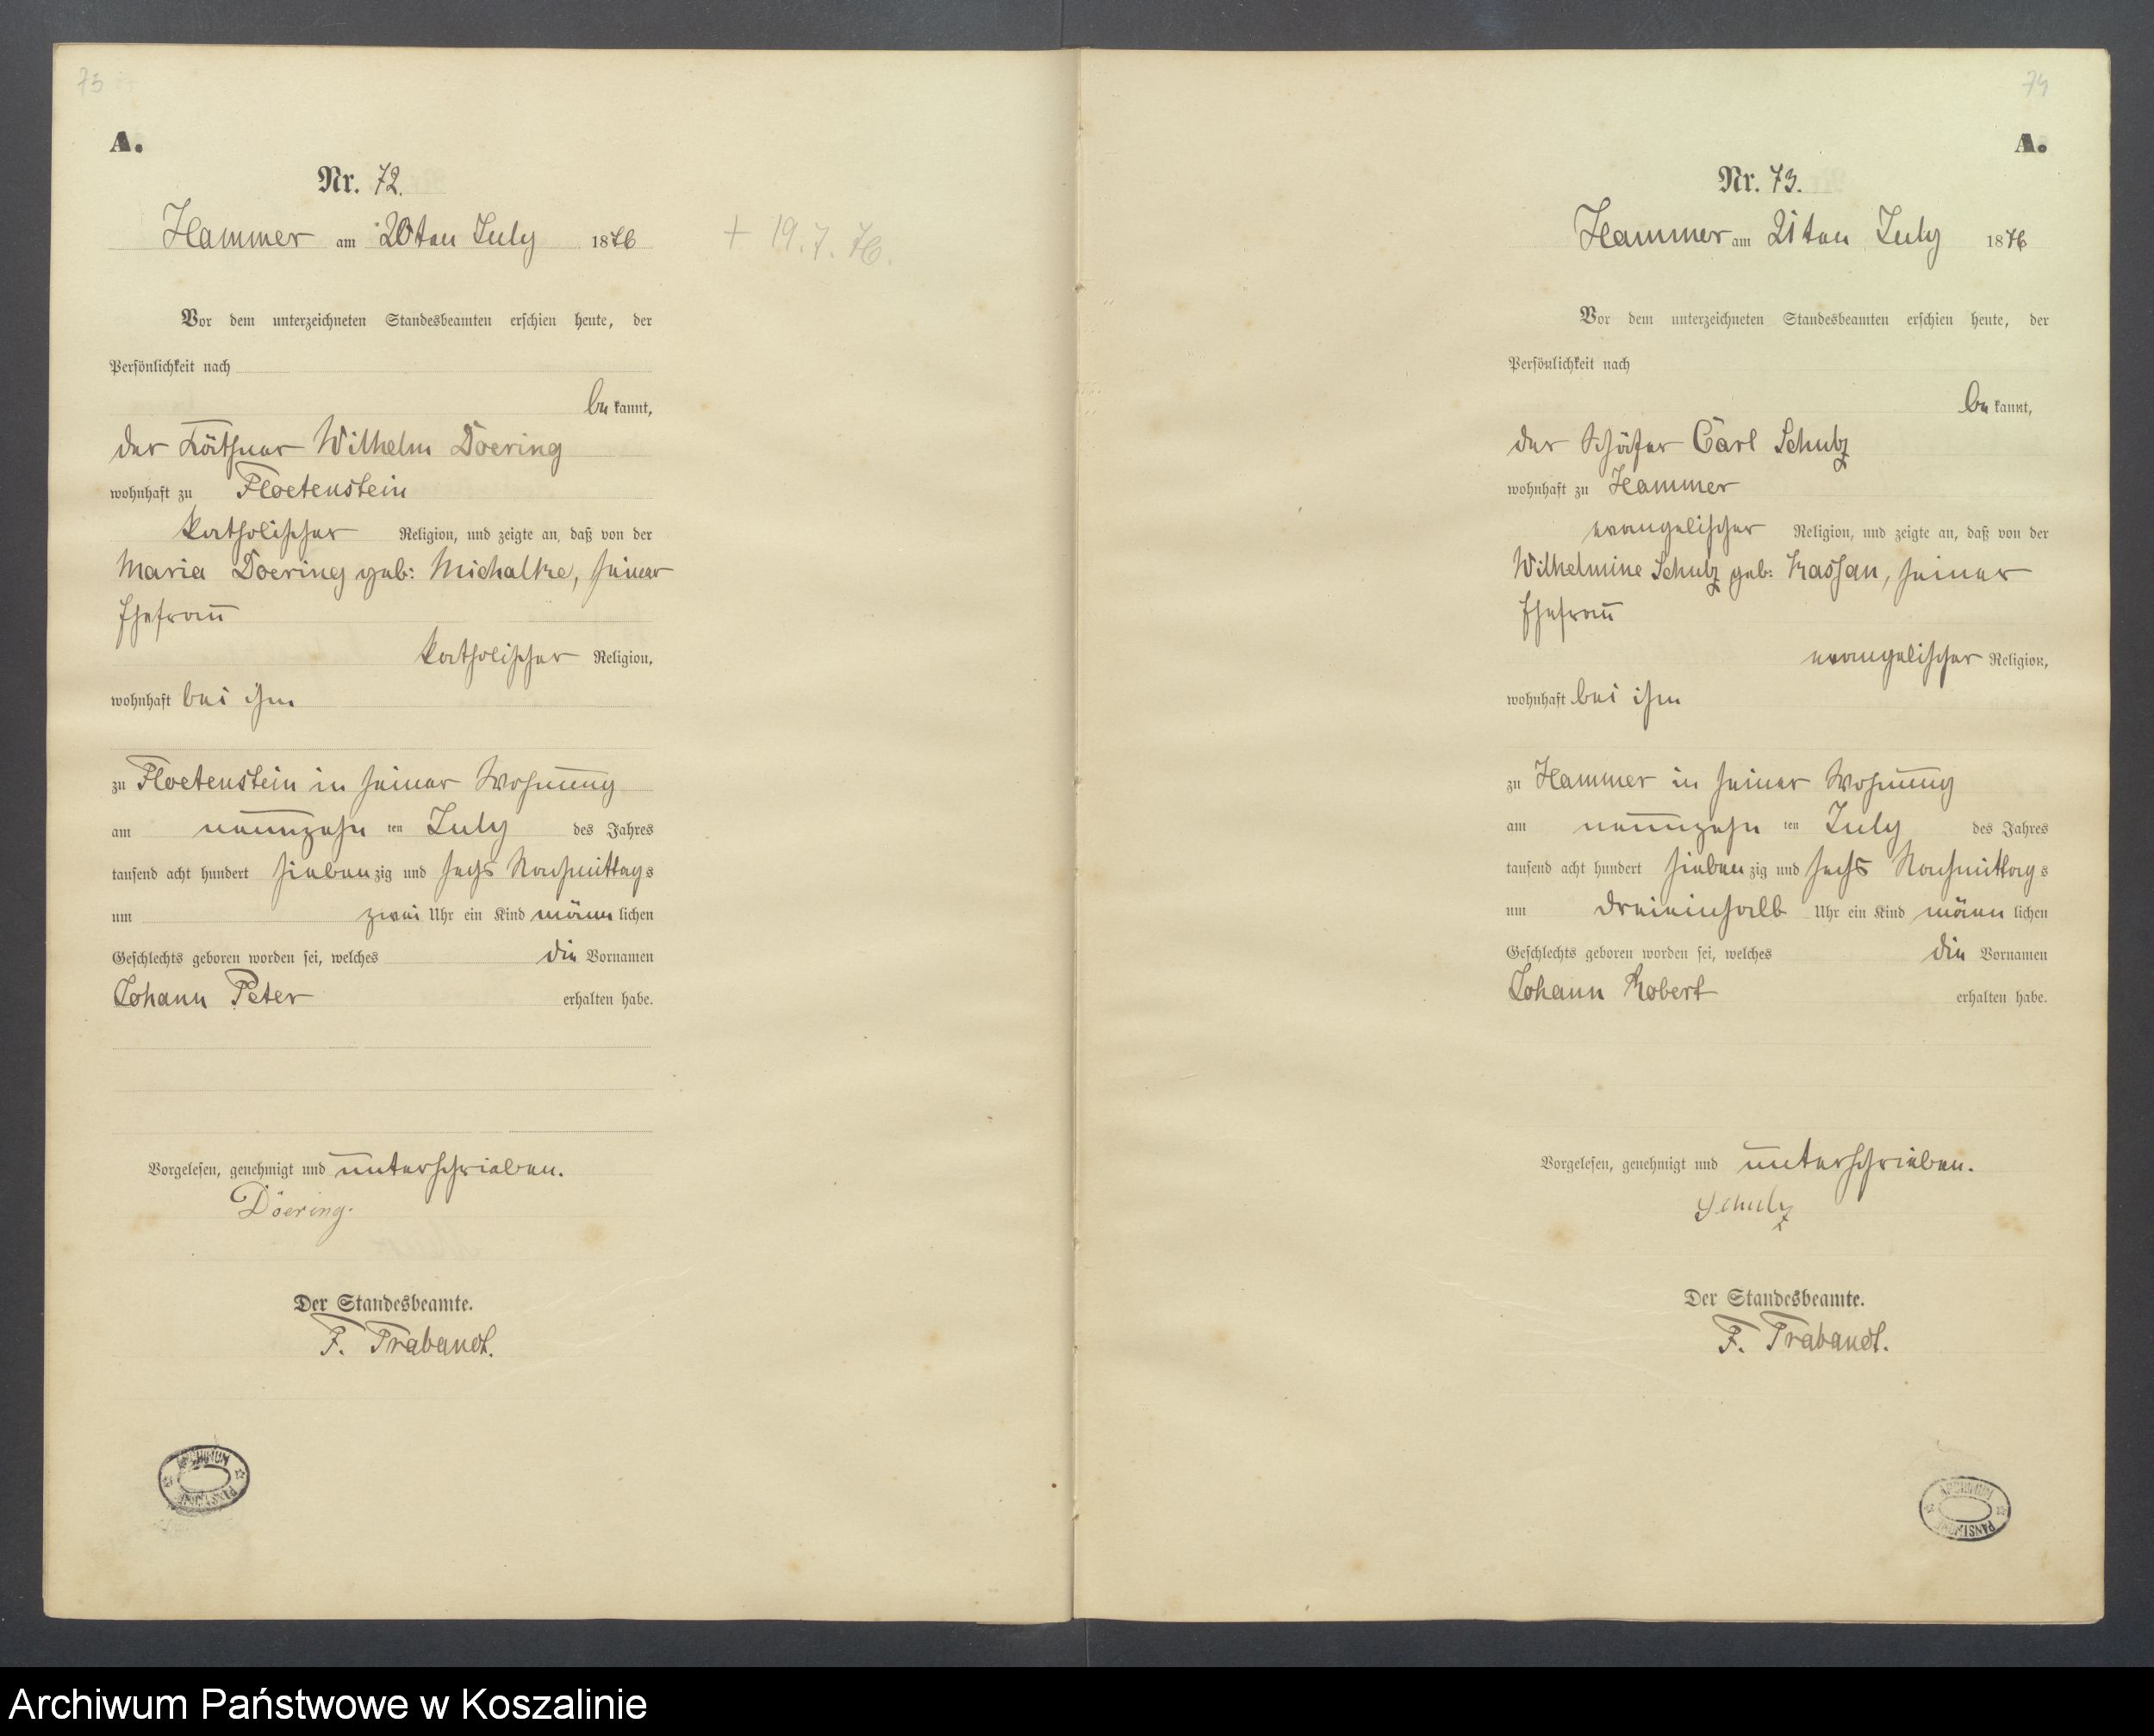 73
A.
Nr. 72.
Hammer am 20ten July 1876
+ 19.7.76.
Vor dem unterzeichneten Standesbeamten erschien heute, der
Persönlichkeit nach
be kannt,
der Käthner Wilhelm Doering
wohnhaft zu Floetenstein
katholischer Religion, und zeigte an, daß von der
Maria Doering geb: Michalke, seiner
Ehefrau
katholischer Religion,
wohnhaft bei ihm
zu Floetenstein in seiner Wohnung
am neunzehn ten July des Jahres
tausend acht hundert sieben zig und sechs Nachmittag s
um zwei Uhr ein Kind männ lichen
Geschlechts geboren worden sei, welches die Vornamen
Johann Peter erhalten habe.
Vorgelesen, genehmigt und unterschrieben.
Döering.
Der Standesbeamte.
F. Trabandt.
ARCHIWUM PAŃSTWOWE
74
A.
Nr. 73.
Hammer am 21ten July 1876
Vor dem unterzeichneten Standesbeamten erschien heute, der
Persönlichkeit nach
be kannt,
der Schäfer Carl Schulz
wohnhaft zu Hammer
evangelischer Religion, und zeigte an, daß von der
Wilhelmine Schulz geb: seiner
Ehefrau
evangelischer Religion,
wohnhaft bei ihm
zu Hammer in seiner Wohnung
am neunzehn ten July des Jahres
tausend acht hundert sieben zig und sechs Nachmittag s
um dreieinhalb Uhr ein Kind männ lichen
Geschlechts geboren worden sei, welches die Vornamen
Johann Robert erhalten habe.
Vorgelesen, genehmigt und unterschrieben.
Schulz
Der Standesbeamte.
F. Trabandt.
ARCHIWUM PAŃSTWOWE
Archiwum Państwowe w Koszalinie